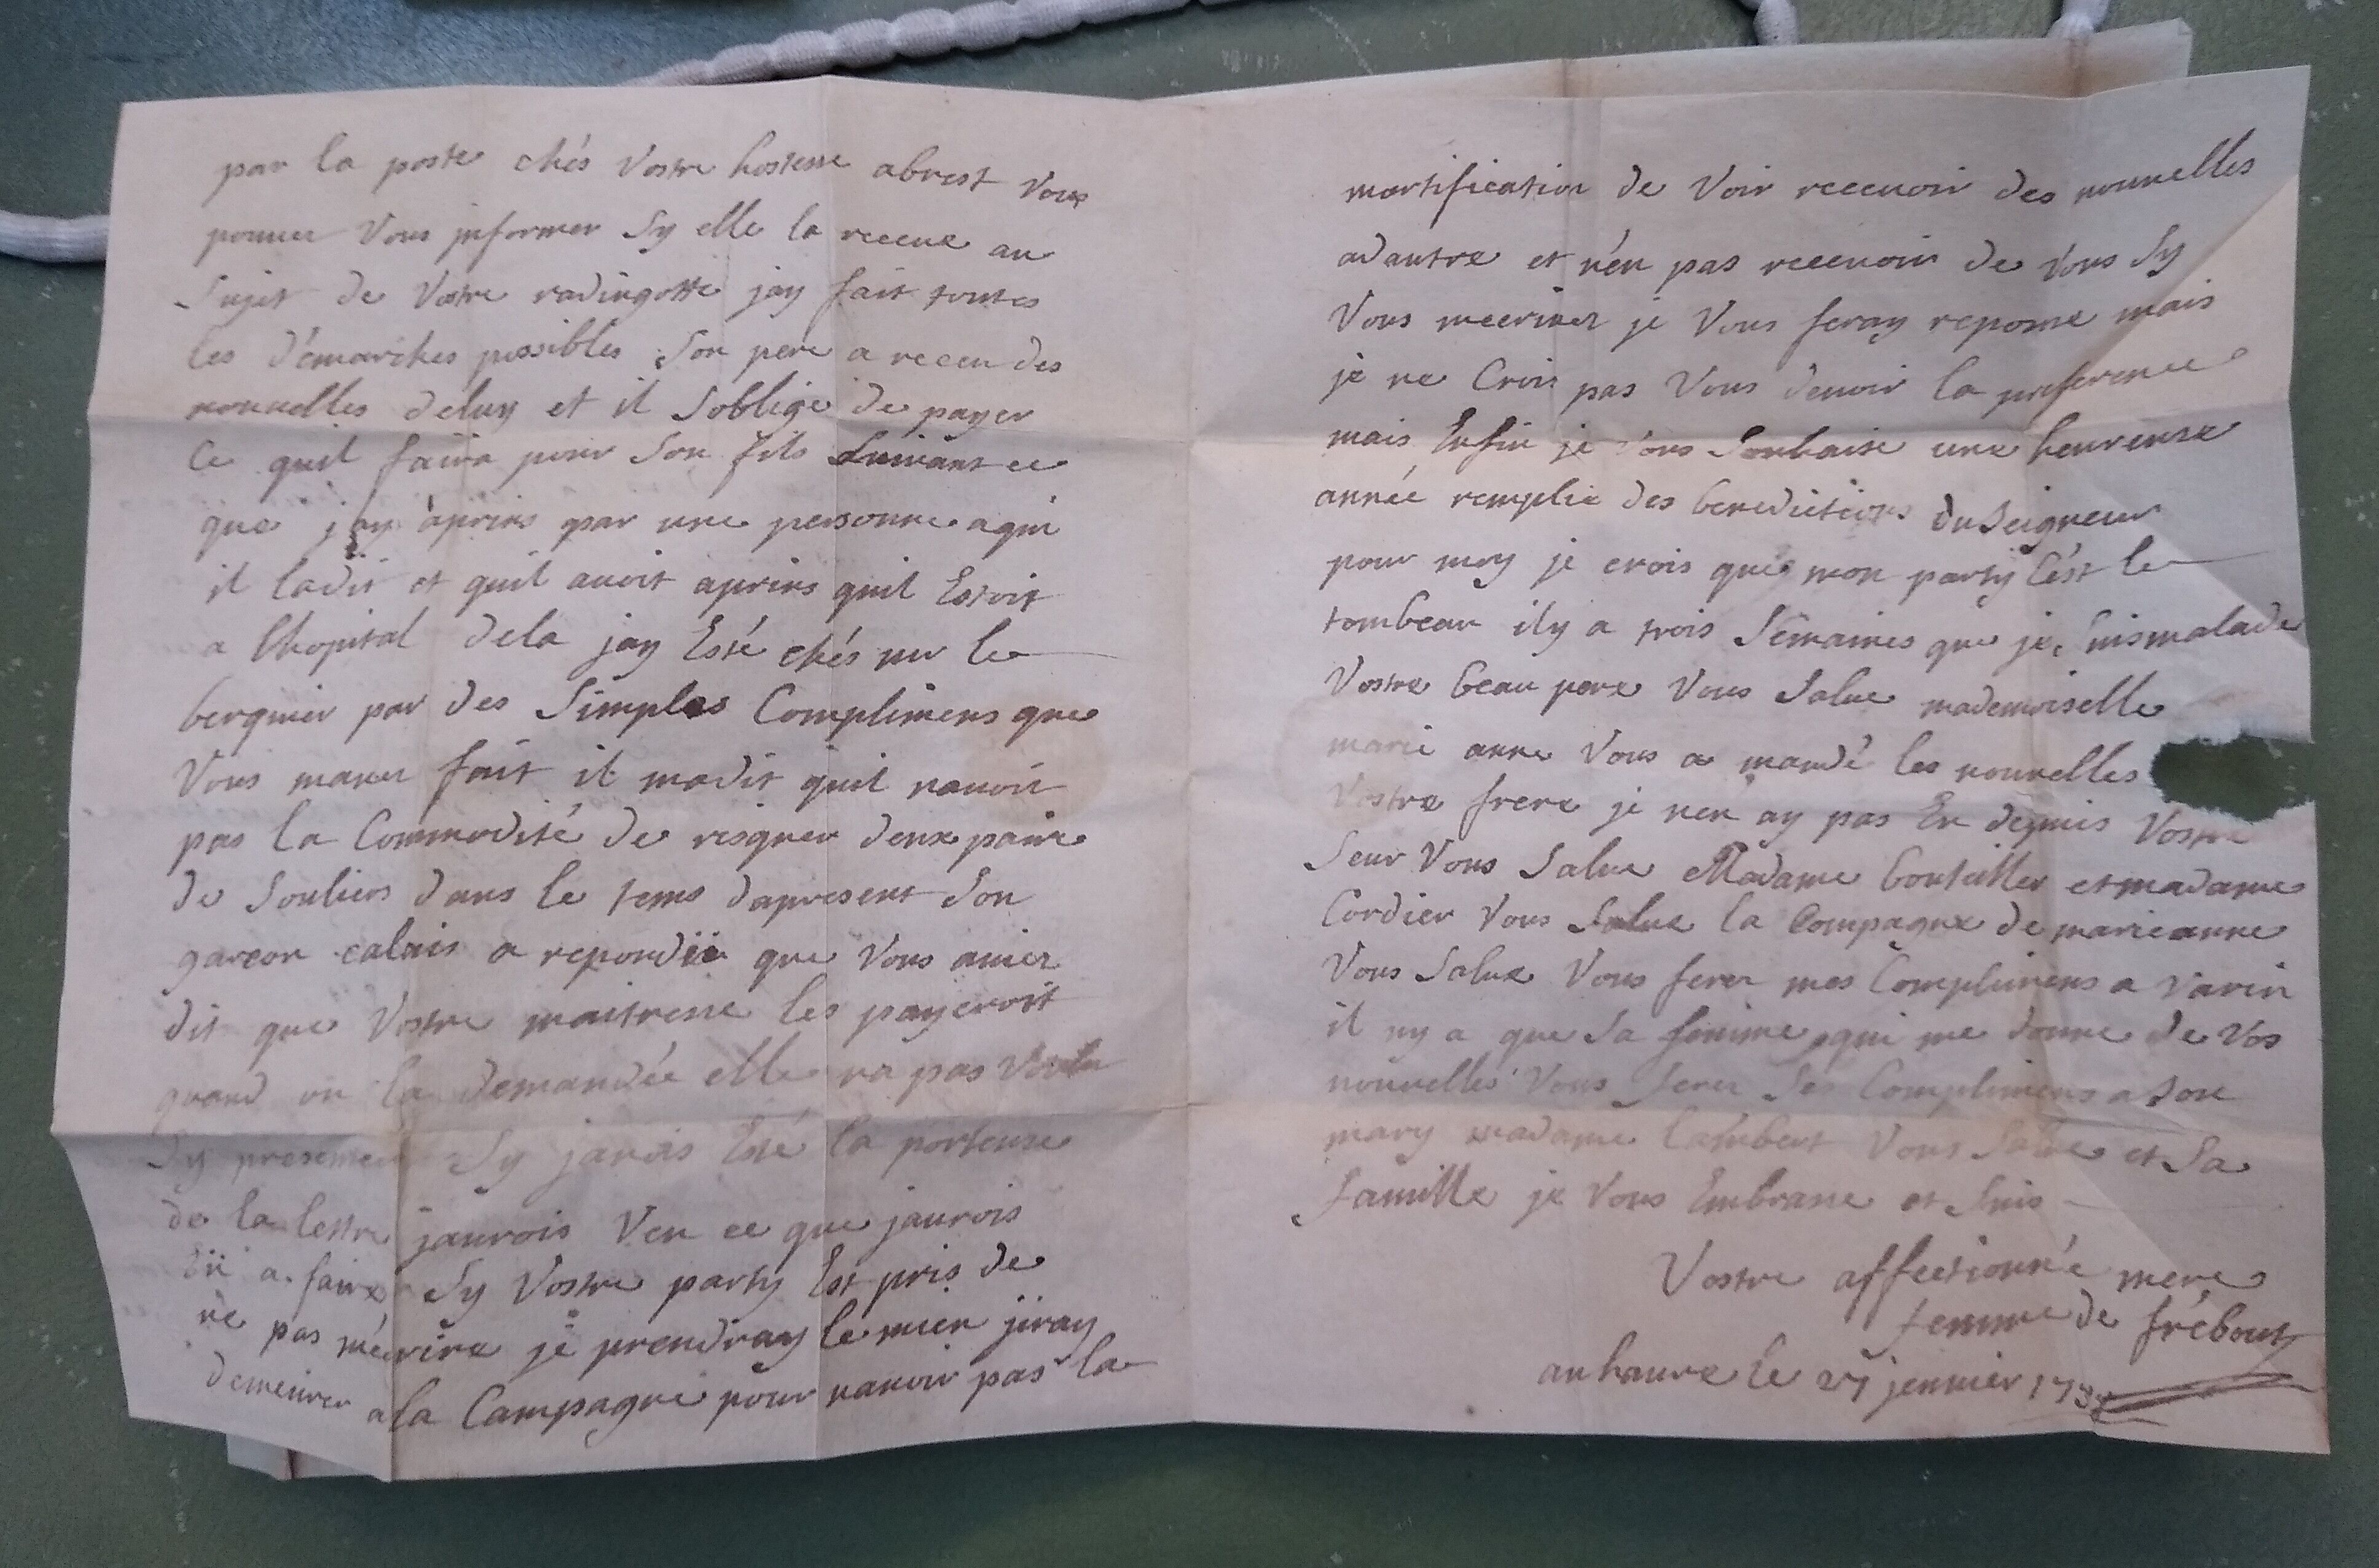 par la poste chés vostre hostesse abrest vous
pouuer vous jnformer sy elle la receue au
sujet de vostre radingotte jay fait toutes
les démarches possibles son pere a receu des
nouuelles deluy et il soblige de payer
ce quil faira pour son fils suiuant ce
que jay aprins par une personne aqui
il ladit et quil auoit aprins quil Estoit
a lhopital dela jay Esté chés mr le
berquier par des simples Complimens que
vous mauer fait il madit quil nauoit
pas la Commodité de risquer deux paire
de souliers dans le tems dapresent son
garcon calais a repondü que vous auiez
dit que vostre maitresse les payeroit
quand on la demandée elle na pas voulu
sy presenter sy jauois Esté la porteuse
de la lettre jaurois veu ce que jaurois
Eü a faire sy vostre party Est pris de
ne pas mécrire je prendray le mien jiray
demeurer ala Campagne pour nauoir pas la
mortification de voir receuoir des nouuelles
adautre et nén pas receuoir de vous sy
vous mecriuez je vous feray reponse mais
je ne Crois pas vous deuoir la preference
mais Enfin je vous souhaise une heureuse
année remplie des benedictions du seigneur
pour moy je crois que mon party Cést le
tombeau ily a trois semaines que je suis malade
vostre beau pere vous salue mademoiselle
marie anne vous a mandé les nouuelles
vostre frere je nen ay pas Eu depuis vostre
seur vous salue Madame bouteiller et madame
Cordier vous salue la Compagne de marieanne
vous salue vous ferez mes Complimens a varin
il ny a que sa femme qui me donne de vos
nouuelles vous ferez ses Complimens a son
mary madame lambert vous salue et sa
famille je vous Embrasse et suis
Vostre affectionnée mere
femme de frébourg
auhaure le 27 jenuier 175